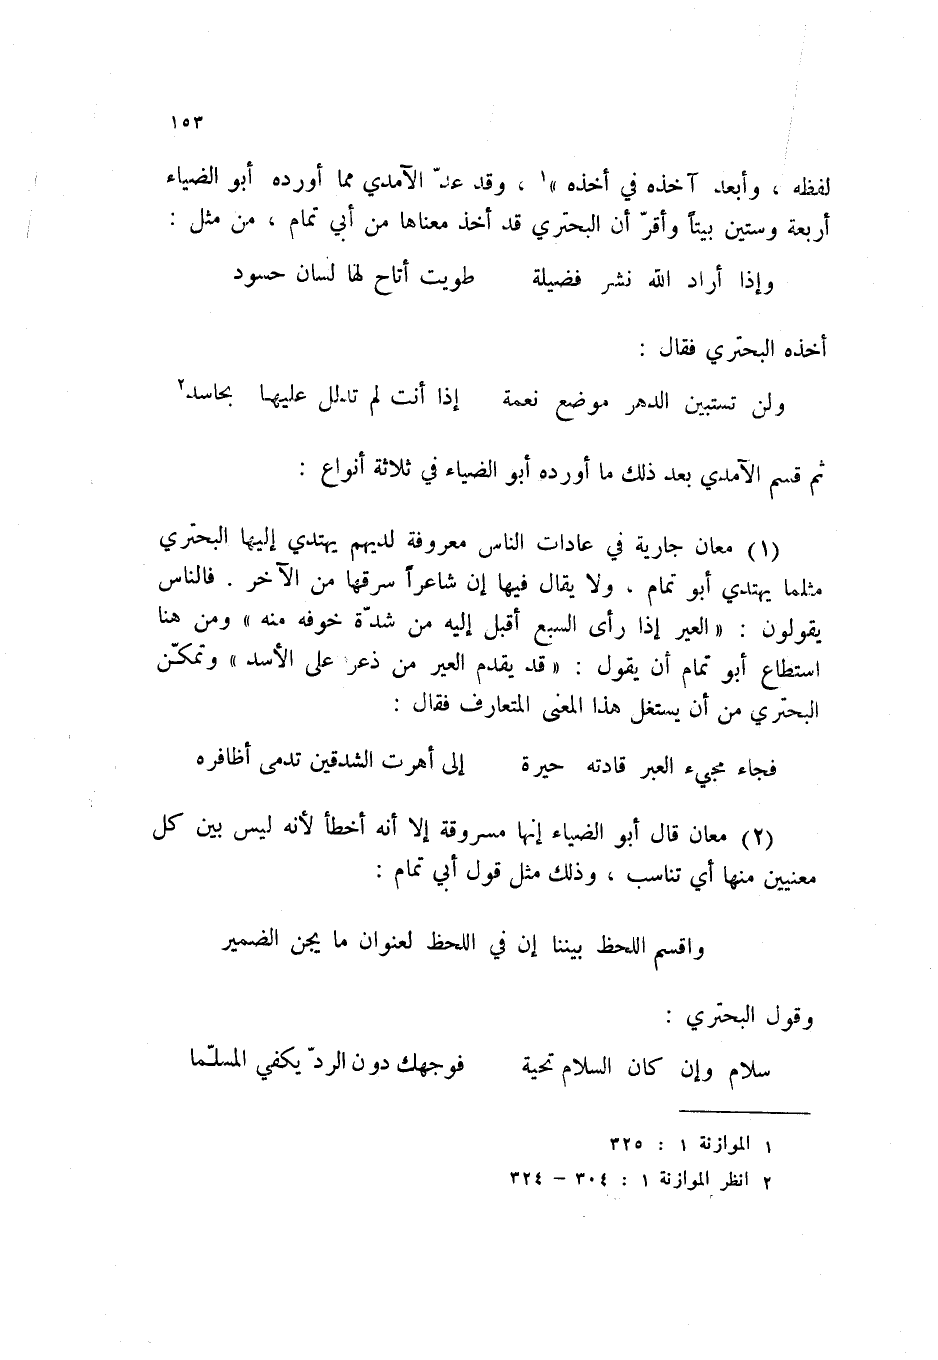 ١٥٣
لفظه ، وأبعد آخذه في أخذه »١ ، وقد عدّ الآمدي مما أورده أبو الضياء
أربعة وستين بيتاً وأقرّ أن البحتري قد أخذ معناها من أبي تمام ، من مثل :
وإذا أراد الله نشر فضيلة طويت أتاح لها لسان حسود
أخذه البحتري فقال :
ولن تستبين الدهر موضع نعمة إذا أنت لم تدلل عليها بحاسد٢
ثم قسم الآمدي بعد ذلك ما أورده أبو الضياء في ثلاثة أنواع :
(١) معان جارية في عادات الناس معروفة لديهم يهتدي إليها البحتري
مثلما يهتدي أبو تمام ، ولا يقال فيها إن شاعراً سرقها من الآخر . فالناس
يقولون : « العير إذا رأى السبع أقبل إليه من شدّة خوفه منه » ومن هنا
استطاع أبو تمام أن يقول : « قد يقدم العير من ذعر على الأسد » وتمكّن
البحتري من أن يستغل هذا المعنى المتعارف فقال :
فجاء مجيء العير قادته حيرة إلى أهرت الشدقين تدمى أظافره
(٢) معان قال أبو الضياء إنها مسروقة إلا أنه أخطأ لأنه ليس بين كل
معنيين منها أي تناسب ، وذلك مثل قول أبي تمام :
واقسم اللحظ بيننا إن في اللحظ لعنوان ما يجن الضمير
وقول البحتري :
سلام وإن كان السلام تحية فوجهك دون الردّ يكفي المسلّما
١ الموازنة ١ : ٣٢٥
٢ انظر الموازنة ١ : ٣٠٤ – ٣٢٤